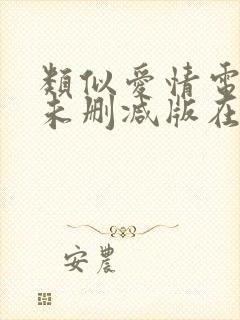 類似愛情電
未删减版在
安農